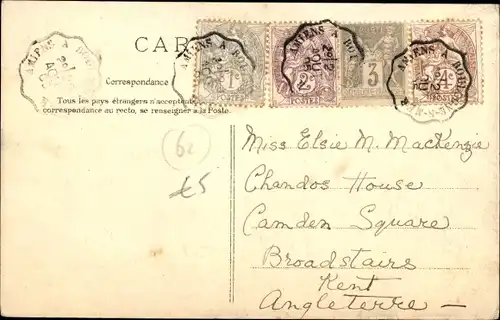 CAR
Correspondance
Tous les pays étrangers n'acceptent
correspondance au recto, se renseigner à la Poste.
AMIENS A
AMIENS A
AMIENS A
AMIENS A
1c
2c
3
4c
POSTES
62
£5
Miss Elsie M. MacKenzie
Chandos House
Camden Square
Broadstairs
Kent
Angleterre —